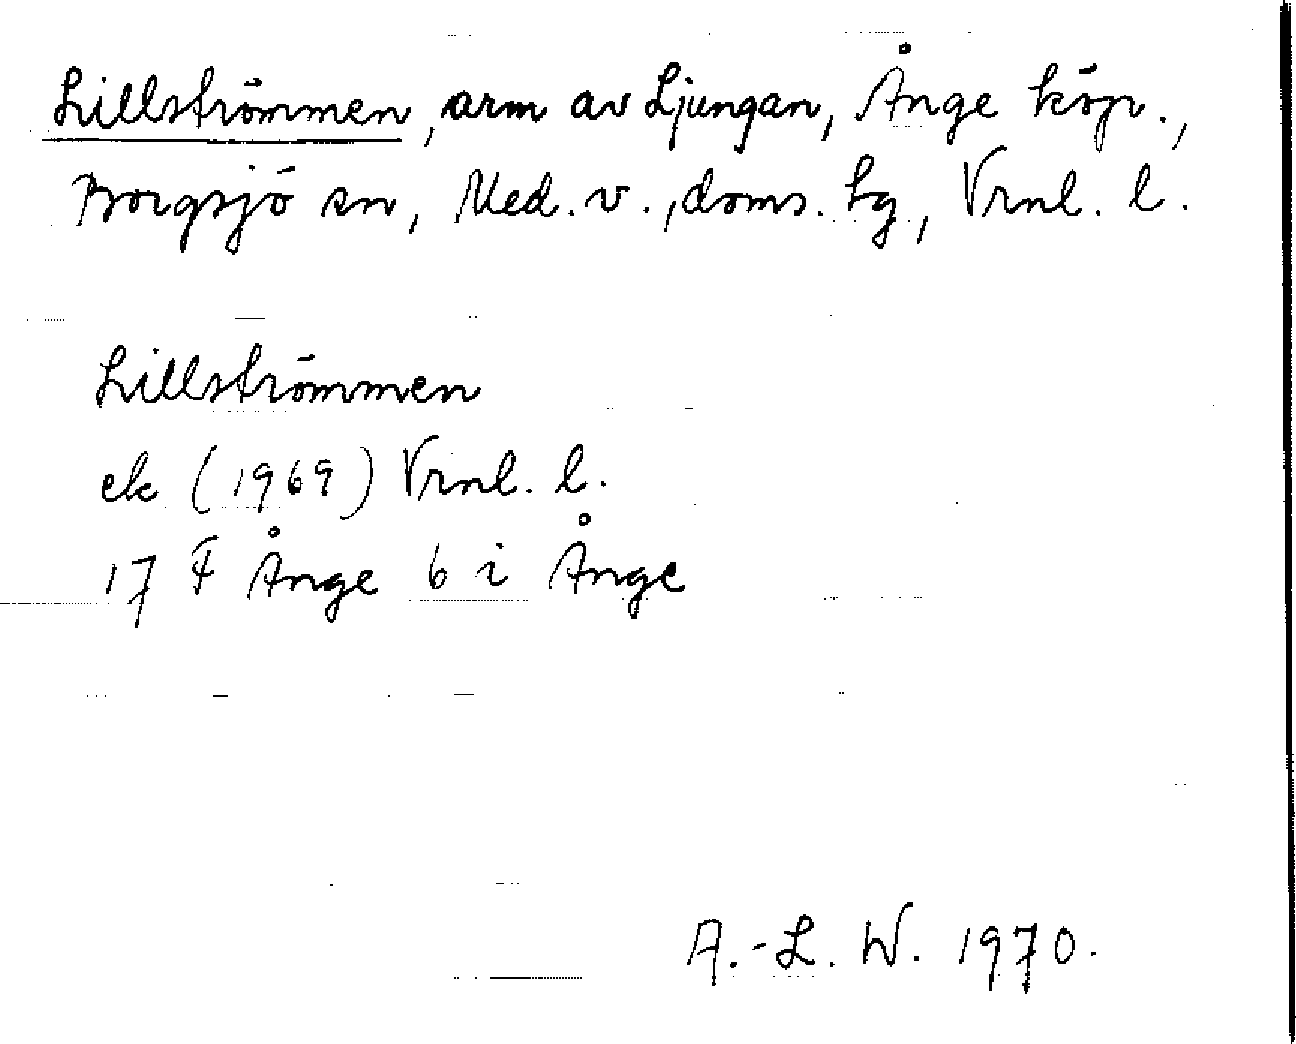 Lillströmmen, arm av Ljungan, Ånge köp.,
Borgsjö sn, Med. v., doms. hg, Vrnl. l.
Lillströmmen
ek (1969) Vrnl. l.
17 F Ånge 6 i Ånge
A.-L. W. 1970.